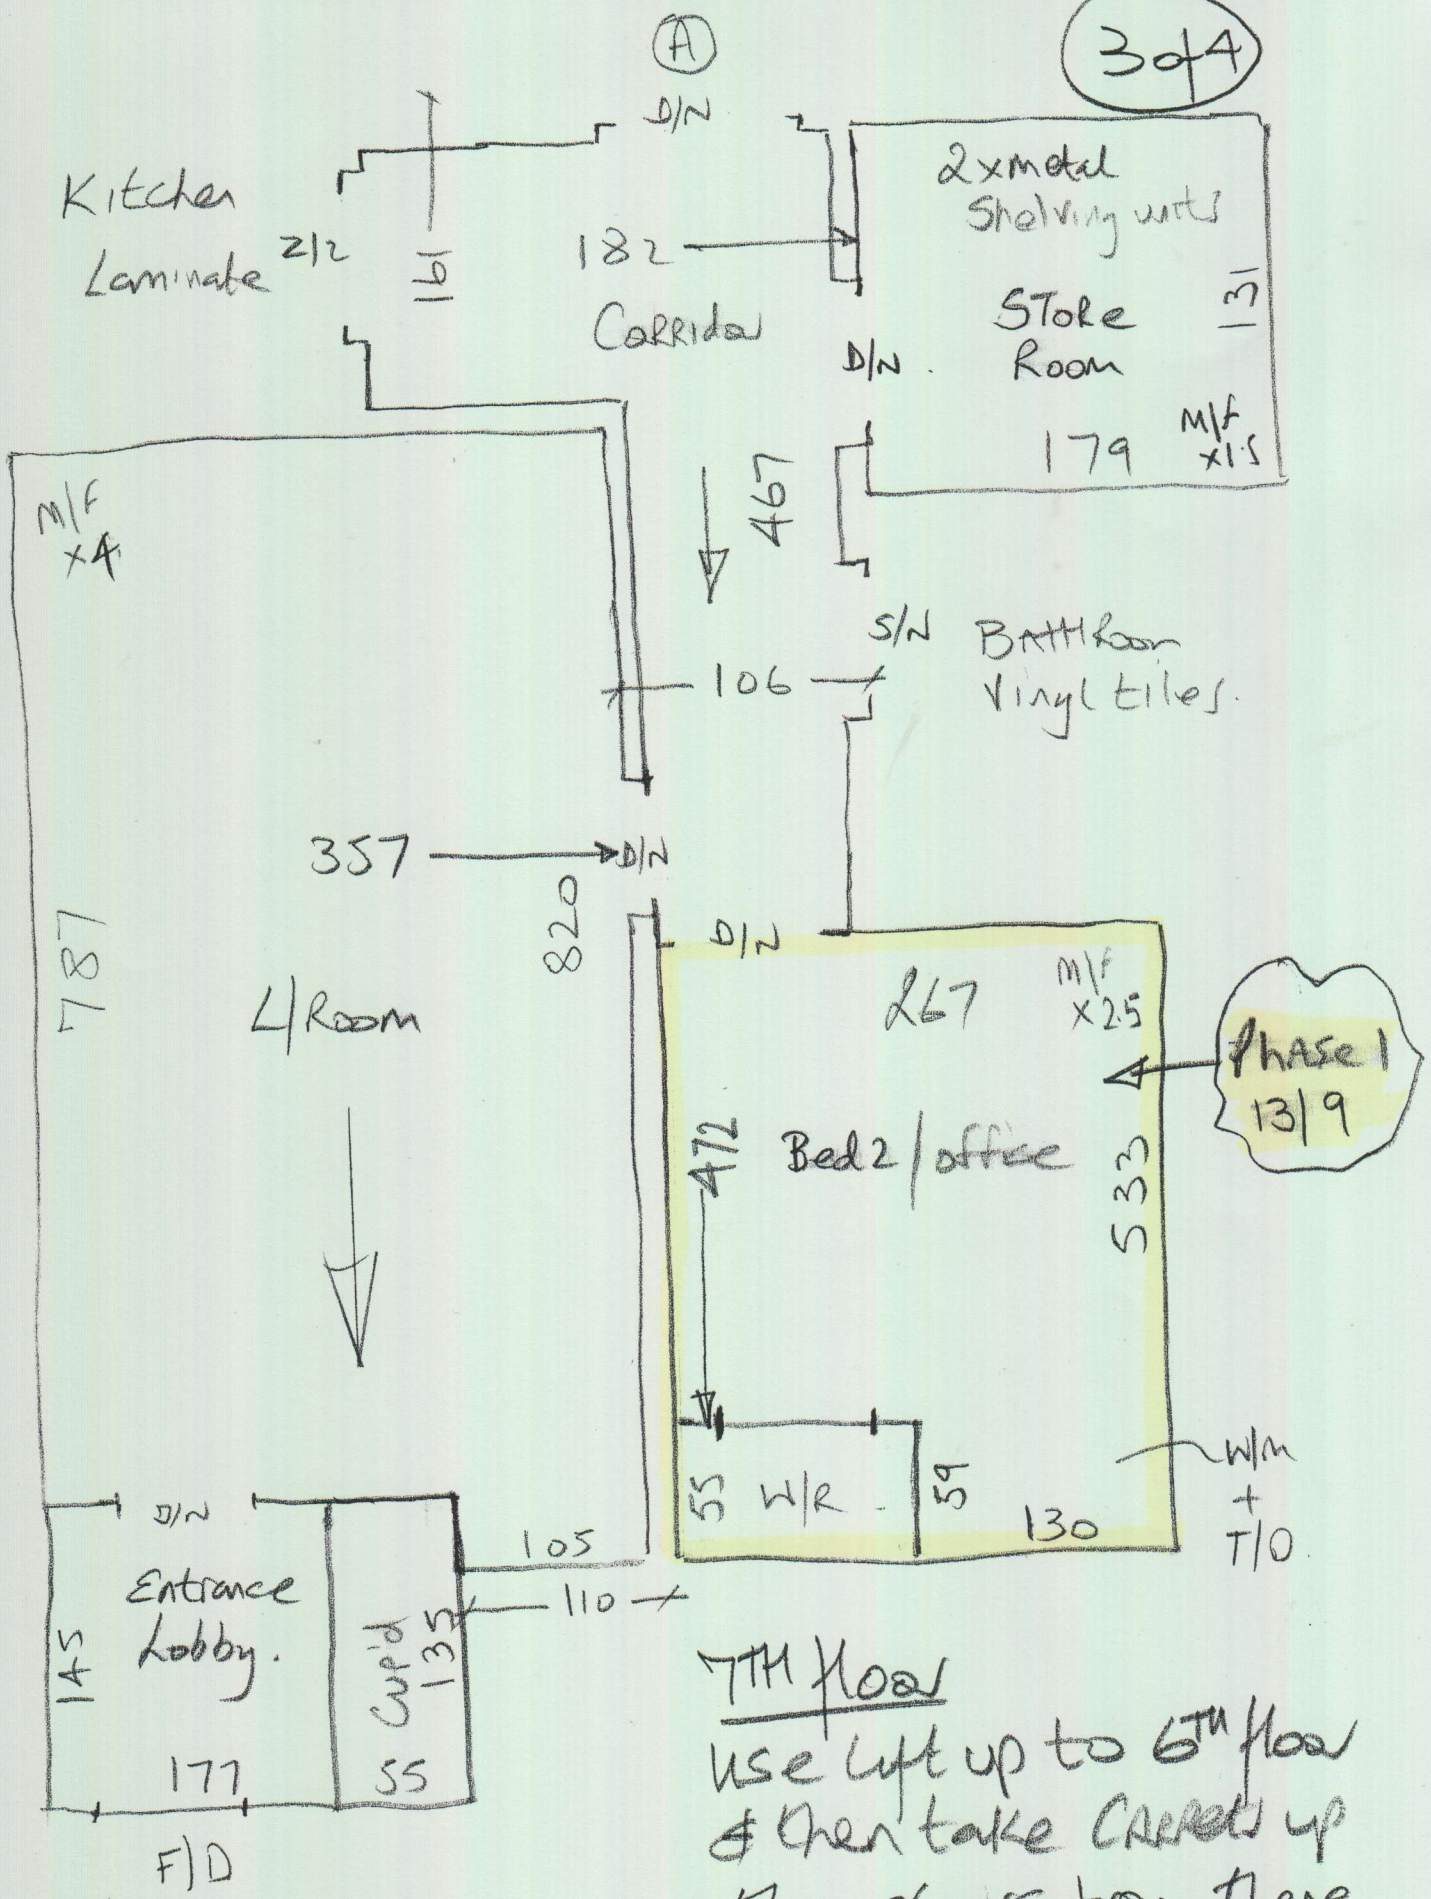 A
3of4
D/N
Kitchen
Laminate
212
161
182
Corridor
2xmetal
Shelving units
STORE
Room
131
D/N.
179
M/F
x1.5
M/F
x4
467
S/N
BATHRoom
Vinyl tiles.
106
357
D/N
820
787
L/Room
D/N
267
M/F
x2.5
Phase 1
13/9
472
Bed2/office
533
55
W/R
59
130
W/M
+
T/O
D/N
Entrance
Lobby.
145
177
Cup'd
135
55
105
110
F/D
7TH floor
use lift up to 6TH floor
& then take CARPETS up